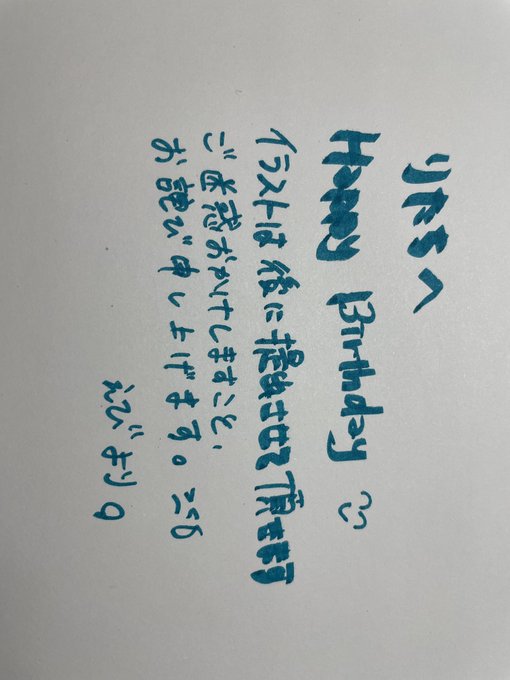 りたろへ
Happy Birthday
イラストは後に提出させて頂きます
ご迷惑おかけしますこと、
お詫び申し上げます。
えびより